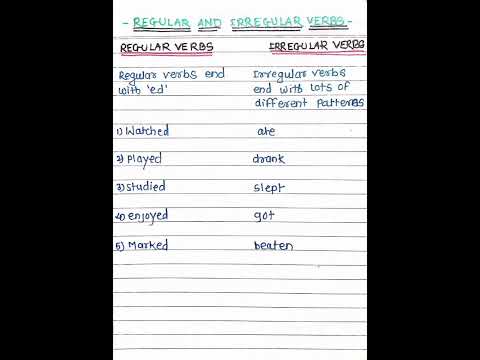 - REGULAR AND IRREGULAR VERBS -
REGULAR VERBS IRREGULAR VERBS
Regular verbs end Irregular verbs
with 'ed' end with lots of
different patterns
1) Watched ate
2) Played drank
3) Studied slept
4) enjoyed got
5) Marked beaten